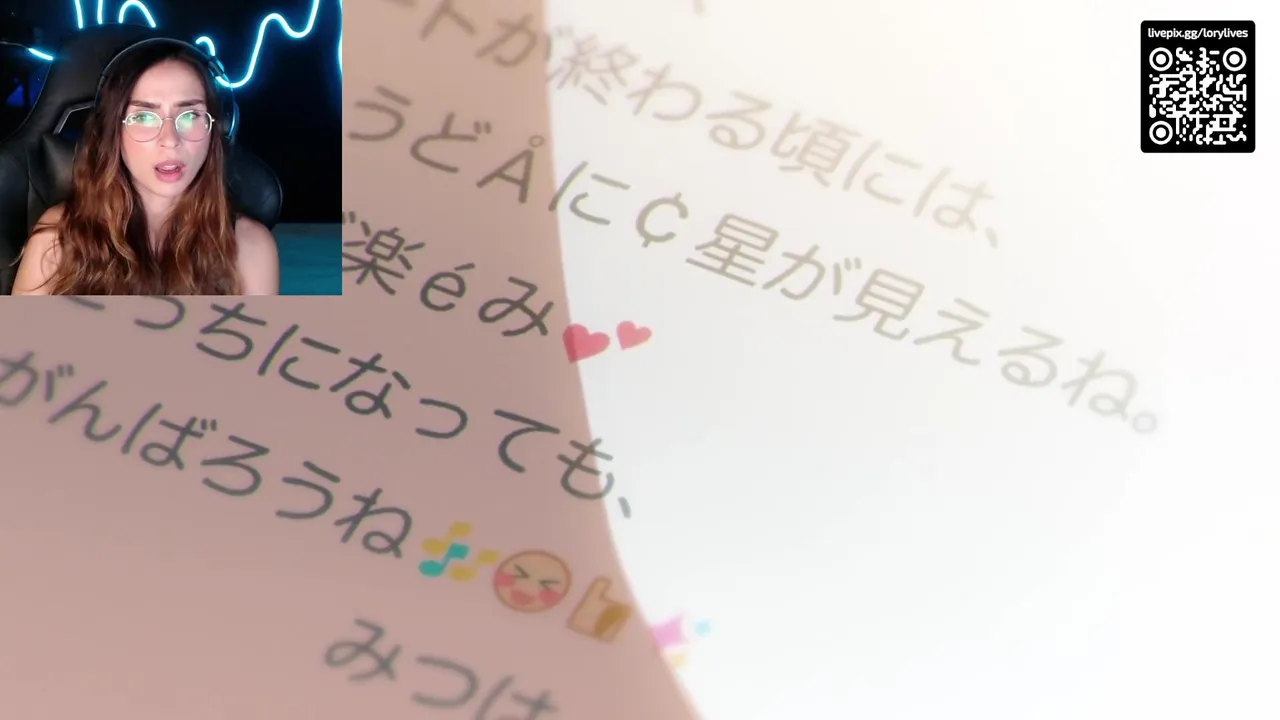 livepix.gg/lorylives
ートが終わる頃には、
うどÅに₵星が見えるね。
楽éみ💕
こっちになっても、
がんばろうね🎶😆🤘🎉
みつは